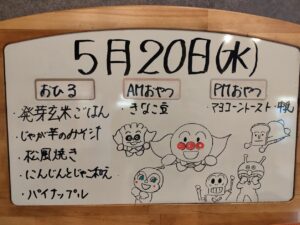 5月20日(水)
おひる
・発芽玄米ごはん
・じゃが芋のみそ汁
・松風焼き
・にんじんとじゃこ和え
・パイナップル
AMおやつ
・きなこ豆
PMおやつ
・マヨコーントースト・牛乳